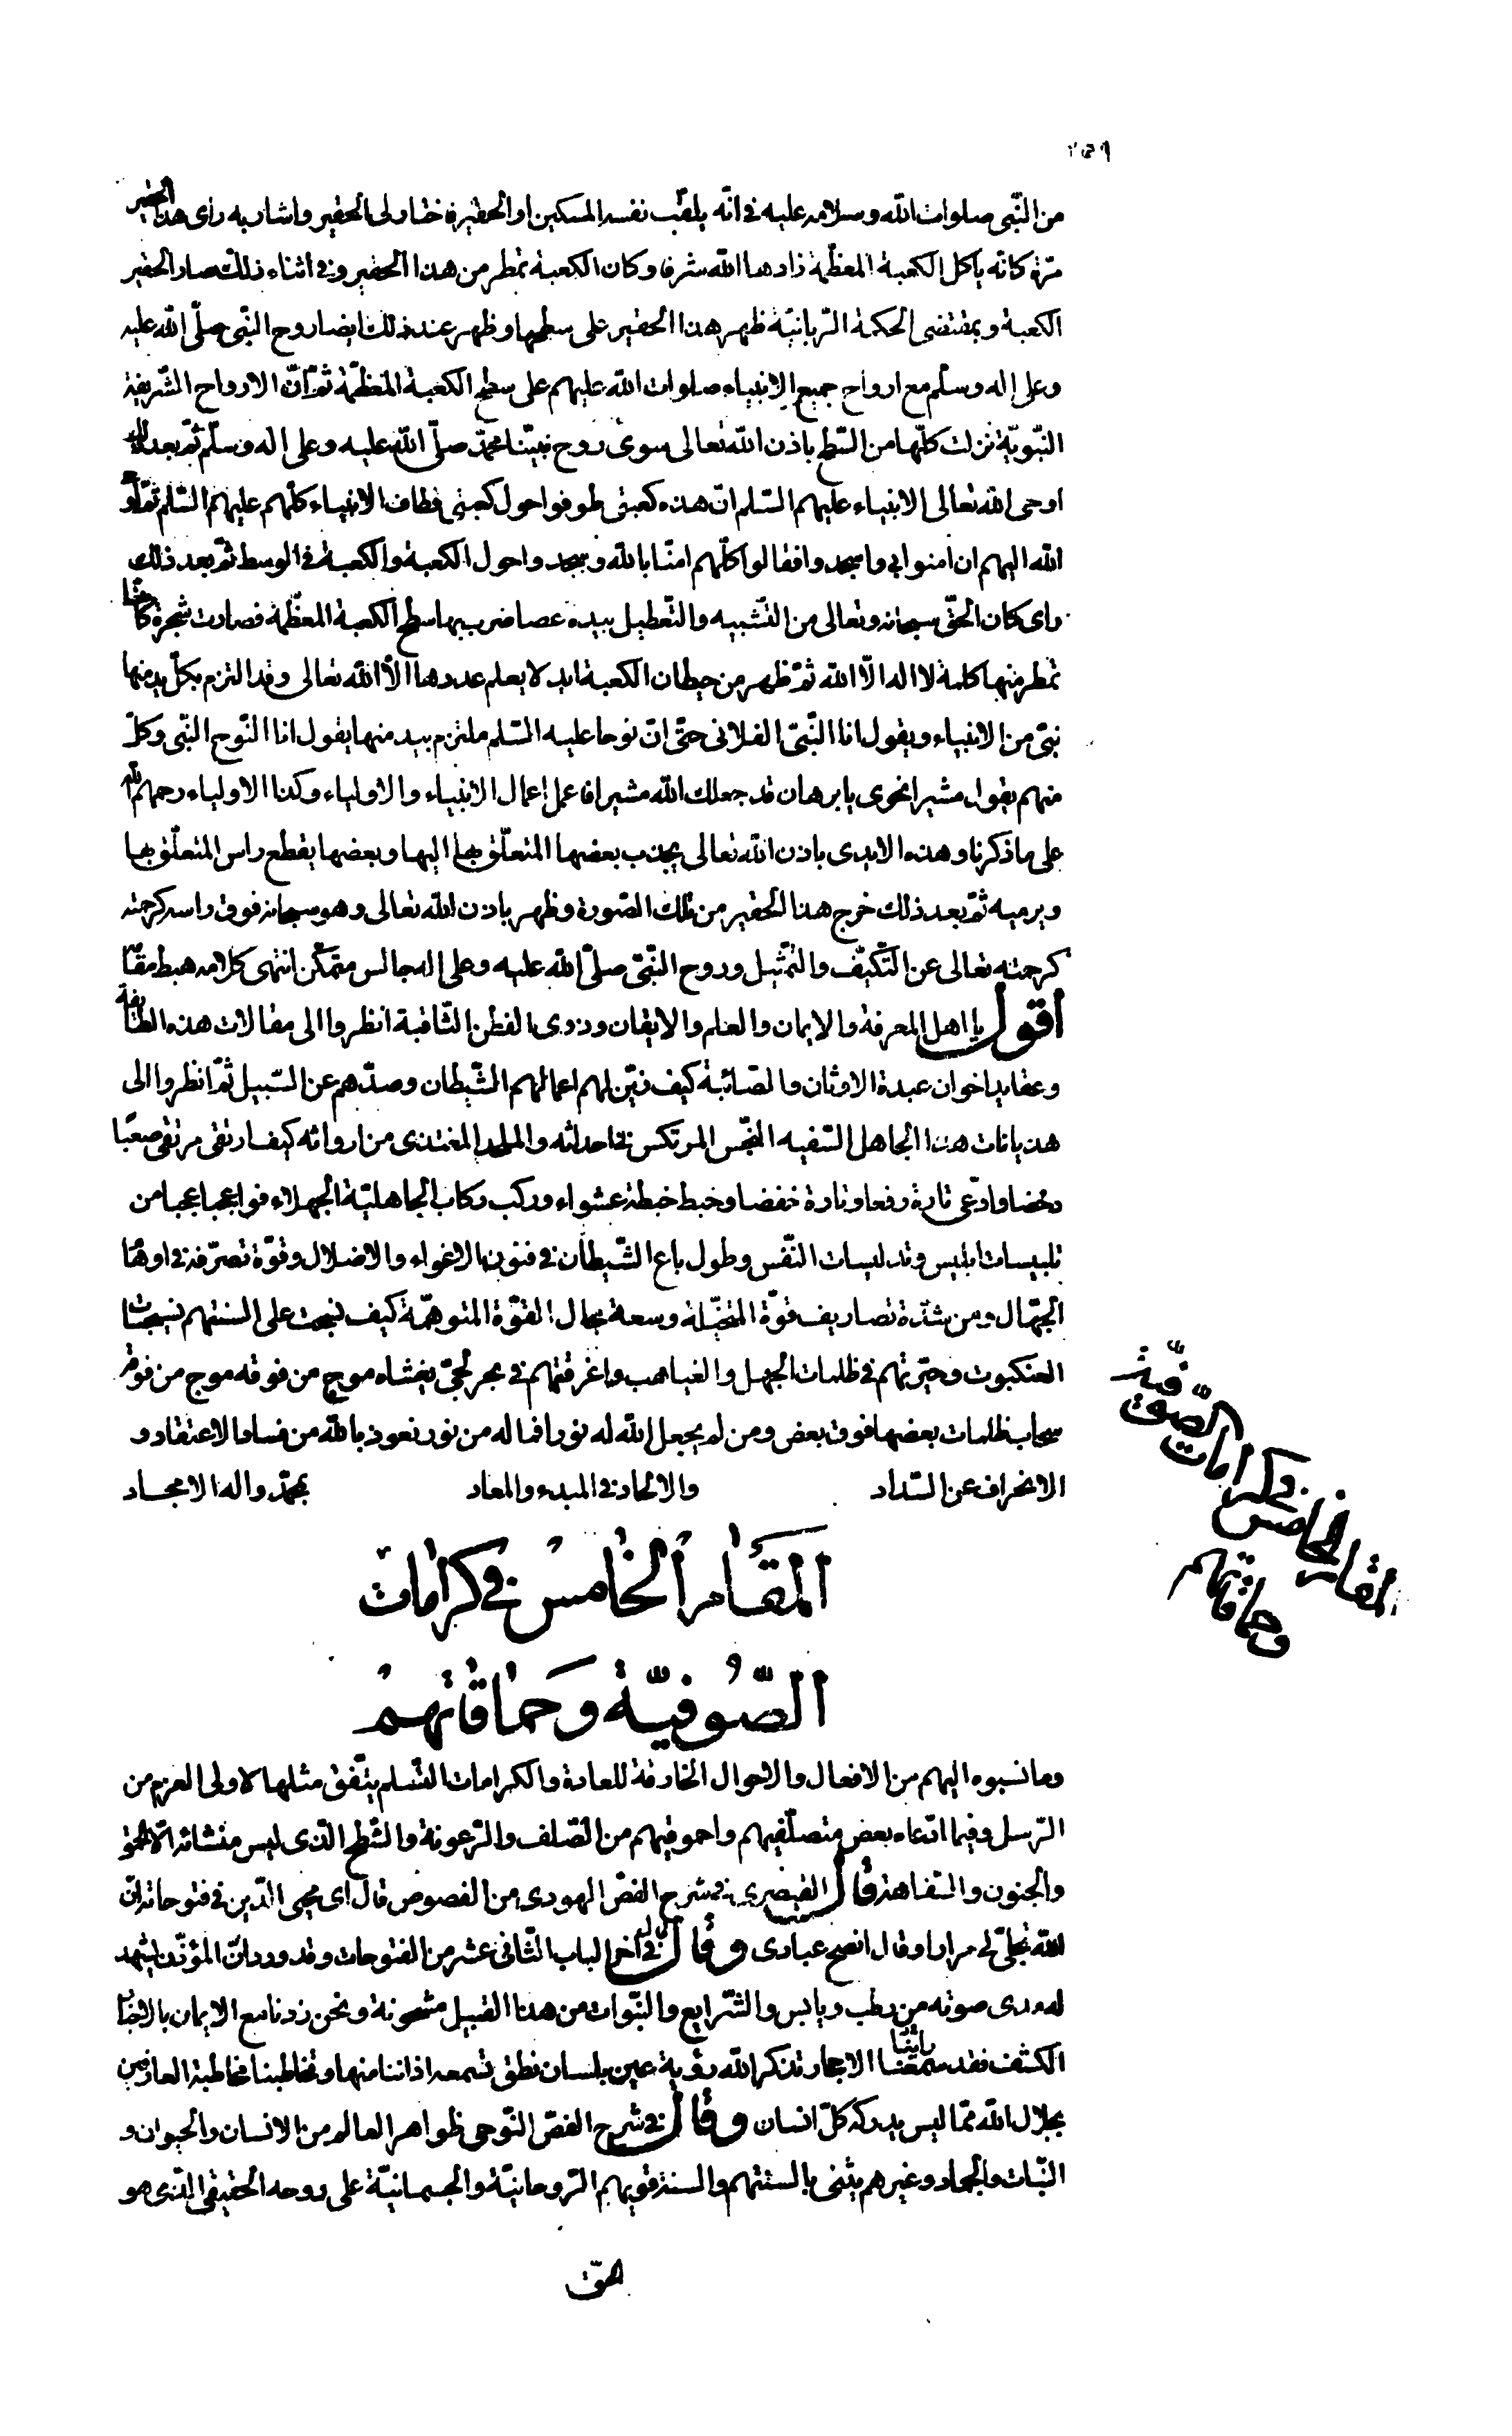 ٢٥٩
من النّبى صلوات الله وسلامه عليه فى انّه يلقّب نفسه المسكين او الحقير فاختار لى الحقير واشار به رأى هذا الحقير
مرّة كانّه ياكل الكعبة المعظّمة زادها الله شرفا وكان الكعبة تمطر من هذا الحقير وفى اثناء ذلك صار الحقير
الكعبة وبمقتضى الحكمة الرّبانيّة ظهر هذا الحقير على سطحها وظهر عند ذلك ايضا روح النّبى صلّى الله عليه
وعلى اله وسلّم مع ارواح جميع الانبياء صلوات الله عليهم على سطح الكعبة المعظّمة ثمّ انّ الارواح الشّريفة
النّبويّة نزلت كلّها من السّطح باذن الله تعالى سوى روح نبيّنا محمّد صلّى الله عليه وعلى اله وسلّم ثمّ بعد ذلك
اوحى الله تعالى الانبياء عليهم السّلم انّ هذه كعبتى طوفوا حول كعبتى فطاف الانبياء كلّهم عليهم السّلم ثمّ اوحى
الله اليهم ان امنوا بى واسجدوا فقالوا كلّهم امنّا بالله وسجدوا حول الكعبة والكعبة فى الوسط ثمّ بعد ذلك
راى كان الحقّ سبحانه وتعالى من التّشبيه والتّعطيل بيده عصا ضرب بها سطح الكعبة المعظّمة فصارت شجرة كانّها
تمطر منها كلمة لا اله الّا الله ثمّ ظهر من حيطان الكعبة ايد لا يعلم عددها الّا الله تعالى وقد التزم بكلّ يد منها
نبىّ من الانبياء ويقول انا النّبىّ الفلانى حتّى انّ نوحا عليه السّلم ملتزم بيد منها يقول انا النّوح النّبى وكلّ
منهم يقول مشيرا نحوى يا برهان قد جعلك الله مشيرا فاعمل اعمال الانبياء والاولياء وكذا الاولياء رحمهم الله
على ما ذكرنا وهذه الايدى باذن الله تعالى يجذب بعضها المتعلّق بها اليها وبعضها يقطع راس المتعلّق بها
ويرميه ثمّ بعد ذلك خرج هذا الحقير من تلك الصّورة وظهر باذن الله تعالى وهو سبحانه فوق راسه كرحمته
كرحمته تعالى عن التّكيّف والتّمثيل وروح النّبىّ صلّى الله عليه وعلى اله جالس متمكّن انتهى كلامه هبط مقامه
اقول يا اهل المعرفة والايمان والعلم والايقان وذوى الفطن الثّاقبة انظروا الى مقالات هذه الطّائفة
وعقايد اخوان عبدة الاوثان والصّائبة كيف زيّن لهم اعمالهم الشّيطان وصدّهم عن السّبيل ثمّ انظروا الى
هذيانات هذا الجاهل السّفيه النّجس المرتكس فى احداثه والملحد المغتذى من ارواثه كيف ارتقى مرتقى صعبا
دحضا وادّعى تارة رفعا وتارة خفضا وخبط خبطة عشواء وركب ركاب الجاهليّة الجهلاء فواعجبا عجبا من
تلبيسات ابليس وتدليسات النّفس وطول باع الشّيطان فى فنون الاغواء والاضلال وقوّة تصرّفه فى اوهام
الجهّال ومن شدّة تصاريف قوّة المتخيّلة وسعة مجال القوّة المتوهّمة كيف نسجت على السنتهم نسيجات
العنكبوت وحيّرتهم فى ظلمات الجهل والغياهب واغرقتهم فى بحر لجىّ يغشاه موج من فوقه موج من فوقه
سحاب ظلمات بعضها فوق بعض ومن لم يجعل الله له نورا فما له من نور نعوذ بالله من فساد الاعتقاد و
الانحراف عن السّداد والالحاد فى المبدء والمعاد بمحمّد واله الامجاد
المقام الخامس فى كرامات
الصّوفيّة وحماقاتهم
المقام الخامس فى كرامات الصّوفيّة
وحماقاتهم
وما نسبوه اليهم من الافعال والاحوال الخارقة للعادة والكرامات الّتى لم يتّفق مثلها لاولى العزم من
الرّسل وفيما ادّعاه بعض متصلّفيهم واحمقيهم من الصّلف والرّعونة والشّطح الّذى ليس منشائه الّا الحمق
والجنون والسّفاهة قال القيصرى فى شرح الفصّ الهودى من الفصوص قال اى محيى الدّين فى فتوحاته انّ
الله تجلّى لى مرارا وقال انصح عبادى وقال فى اخر الباب الثّانى عشر من الفتوحات وقد ورد انّ المؤذّن يشهد
له مدى صوته من رطب ويابس والشّرايع والنّبوّات من هذا القبيل مشحونة ونحن زدنا مع الايمان بالاخبار
الكشف فقد سمعنا الاحجار تذكر الله رؤية عين بلسان نطق تسمعه اذاننا منها وتخاطبنا مخاطبة العارفين
بجلال الله ممّا ليس يدركه كلّ انسان وقال فى شرح الفصّ النّوحى ظواهر العالم من الانسان والحيوان و
النّبات والجماد وغيرهم يثنى بالسنتهم والسنة قويهم الرّوحانيّة والجسمانيّة على روحه الحقيقى الّذى هو
الحقّ